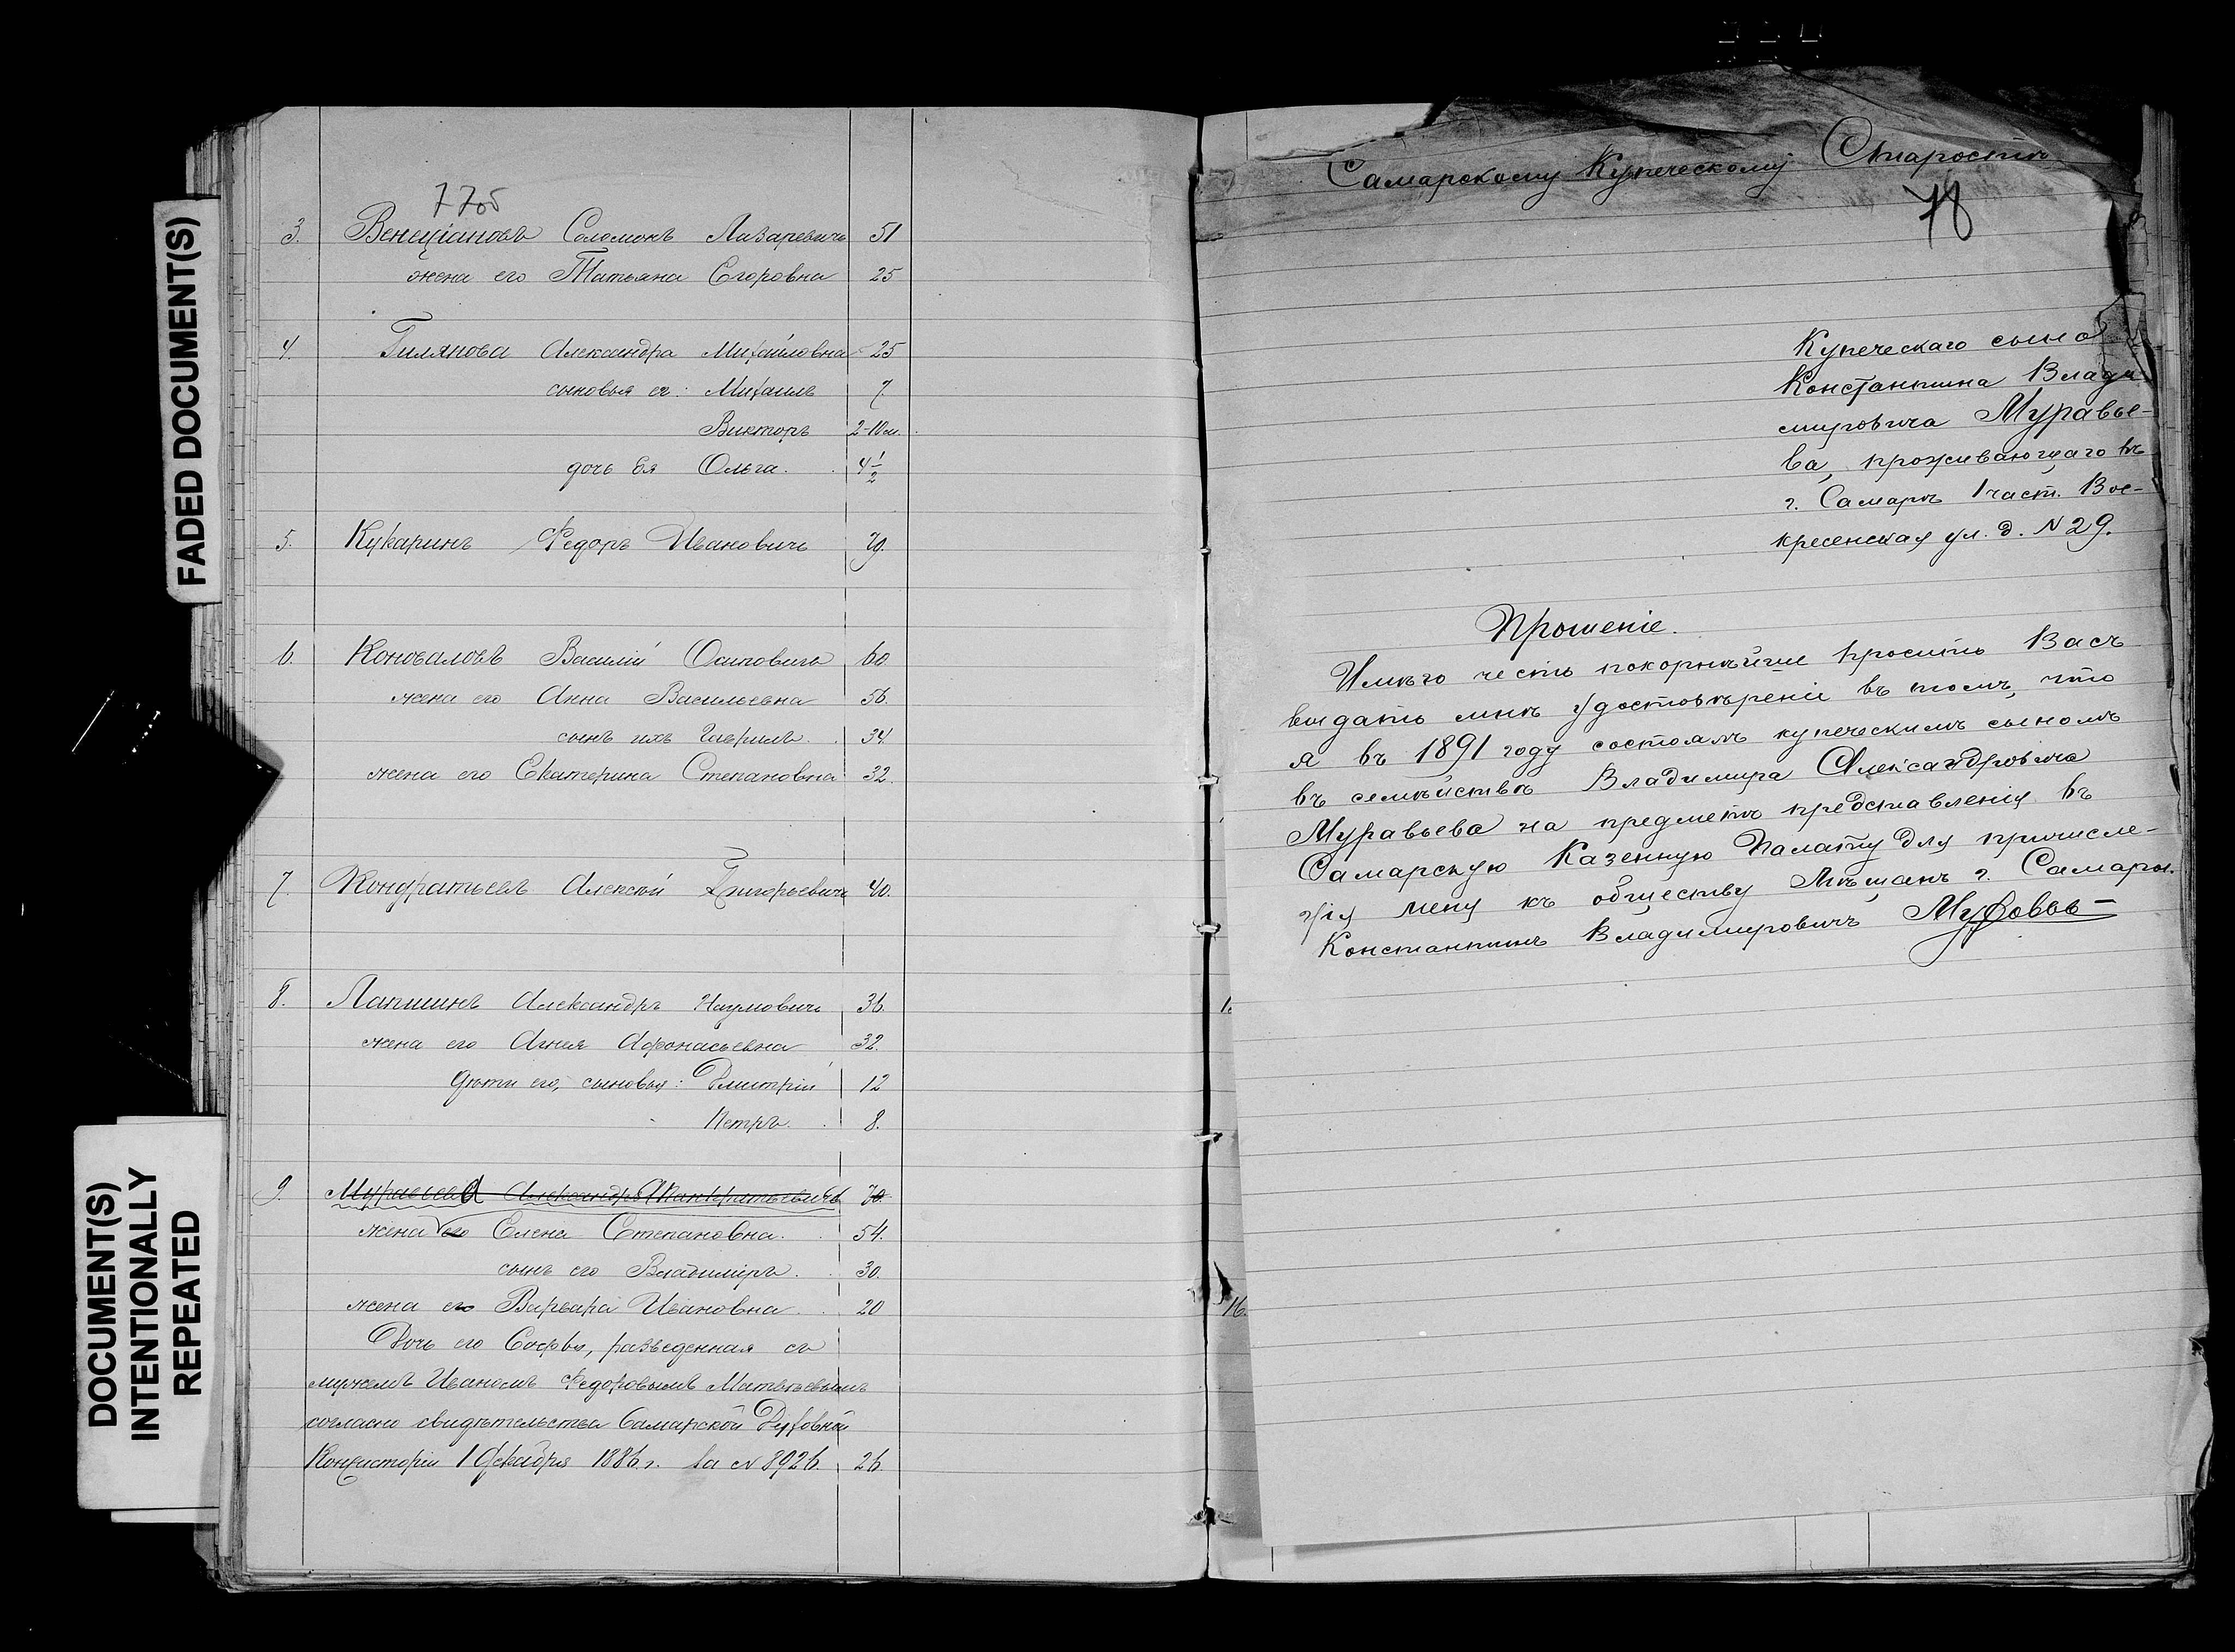 FADED DOCUMENT(S)
DOCUMENT(S)
INTENTIONALLY
REPEATED
77об
3. Венеціановъ Соломонъ Лазаревичъ 51
жена его Татьяна Егоровна 25
4. Гилянова Александра Михайловна 25
сыновья ея: Михаилъ 7.
Викторъ 2-10 м.
дочь Ея Ольга. 4 1/2
5. Кукаринъ Федоръ Ивановичъ 70.
6. Коноваловъ Василій Осиповичъ 60.
жена его Анна Васильевна 56.
сынъ ихъ Гаврилъ. 34.
жена его Екатерина Степановна 32.
7. Кондратьевъ Алексѣй Григорьевичъ 40.
8. Лапшинъ Александръ Наумовичъ 36.
жена его Агнея Афонасьевна 32.
дѣти его, сыновья: Дмитрій 12
Петръ. 8.
9. Муравьева Александра Панкратьевича 70.
жена его Елена Степановна. 54.
сынъ его Владиміръ. 30.
жена его Варвара Ивановна. 20
Дочь его Софья, разведенная съ
мужемъ Иваномъ Федоровымъ Матвѣевымъ
согласно свидѣтельства Самарской Духовной
Консисторіи 1 Декабря 1886 г. за № 8926. 26.
Самарскому Купеческому Старостѣ
78
Купеческаго сына
Константина Влади
мировича Муравье-
ва, проживающаго въ
г. Самарѣ 1 част. Вос-
кресенская ул. д. № 29.
Прошеніе.
Имѣю честь покорнѣйше просить Васъ
выдать мнѣ удостовѣреніе въ томъ, что
я въ 1891 году состоялъ купеческимъ сыномъ
въ семействѣ Владимира Александровича
Муравьева на предметъ представленія въ
Самарскую Казенную Палату для причисле-
нія меня къ обществу Мѣщанъ г. Самары.
Константинъ Владимировичъ Муравьевъ
16.